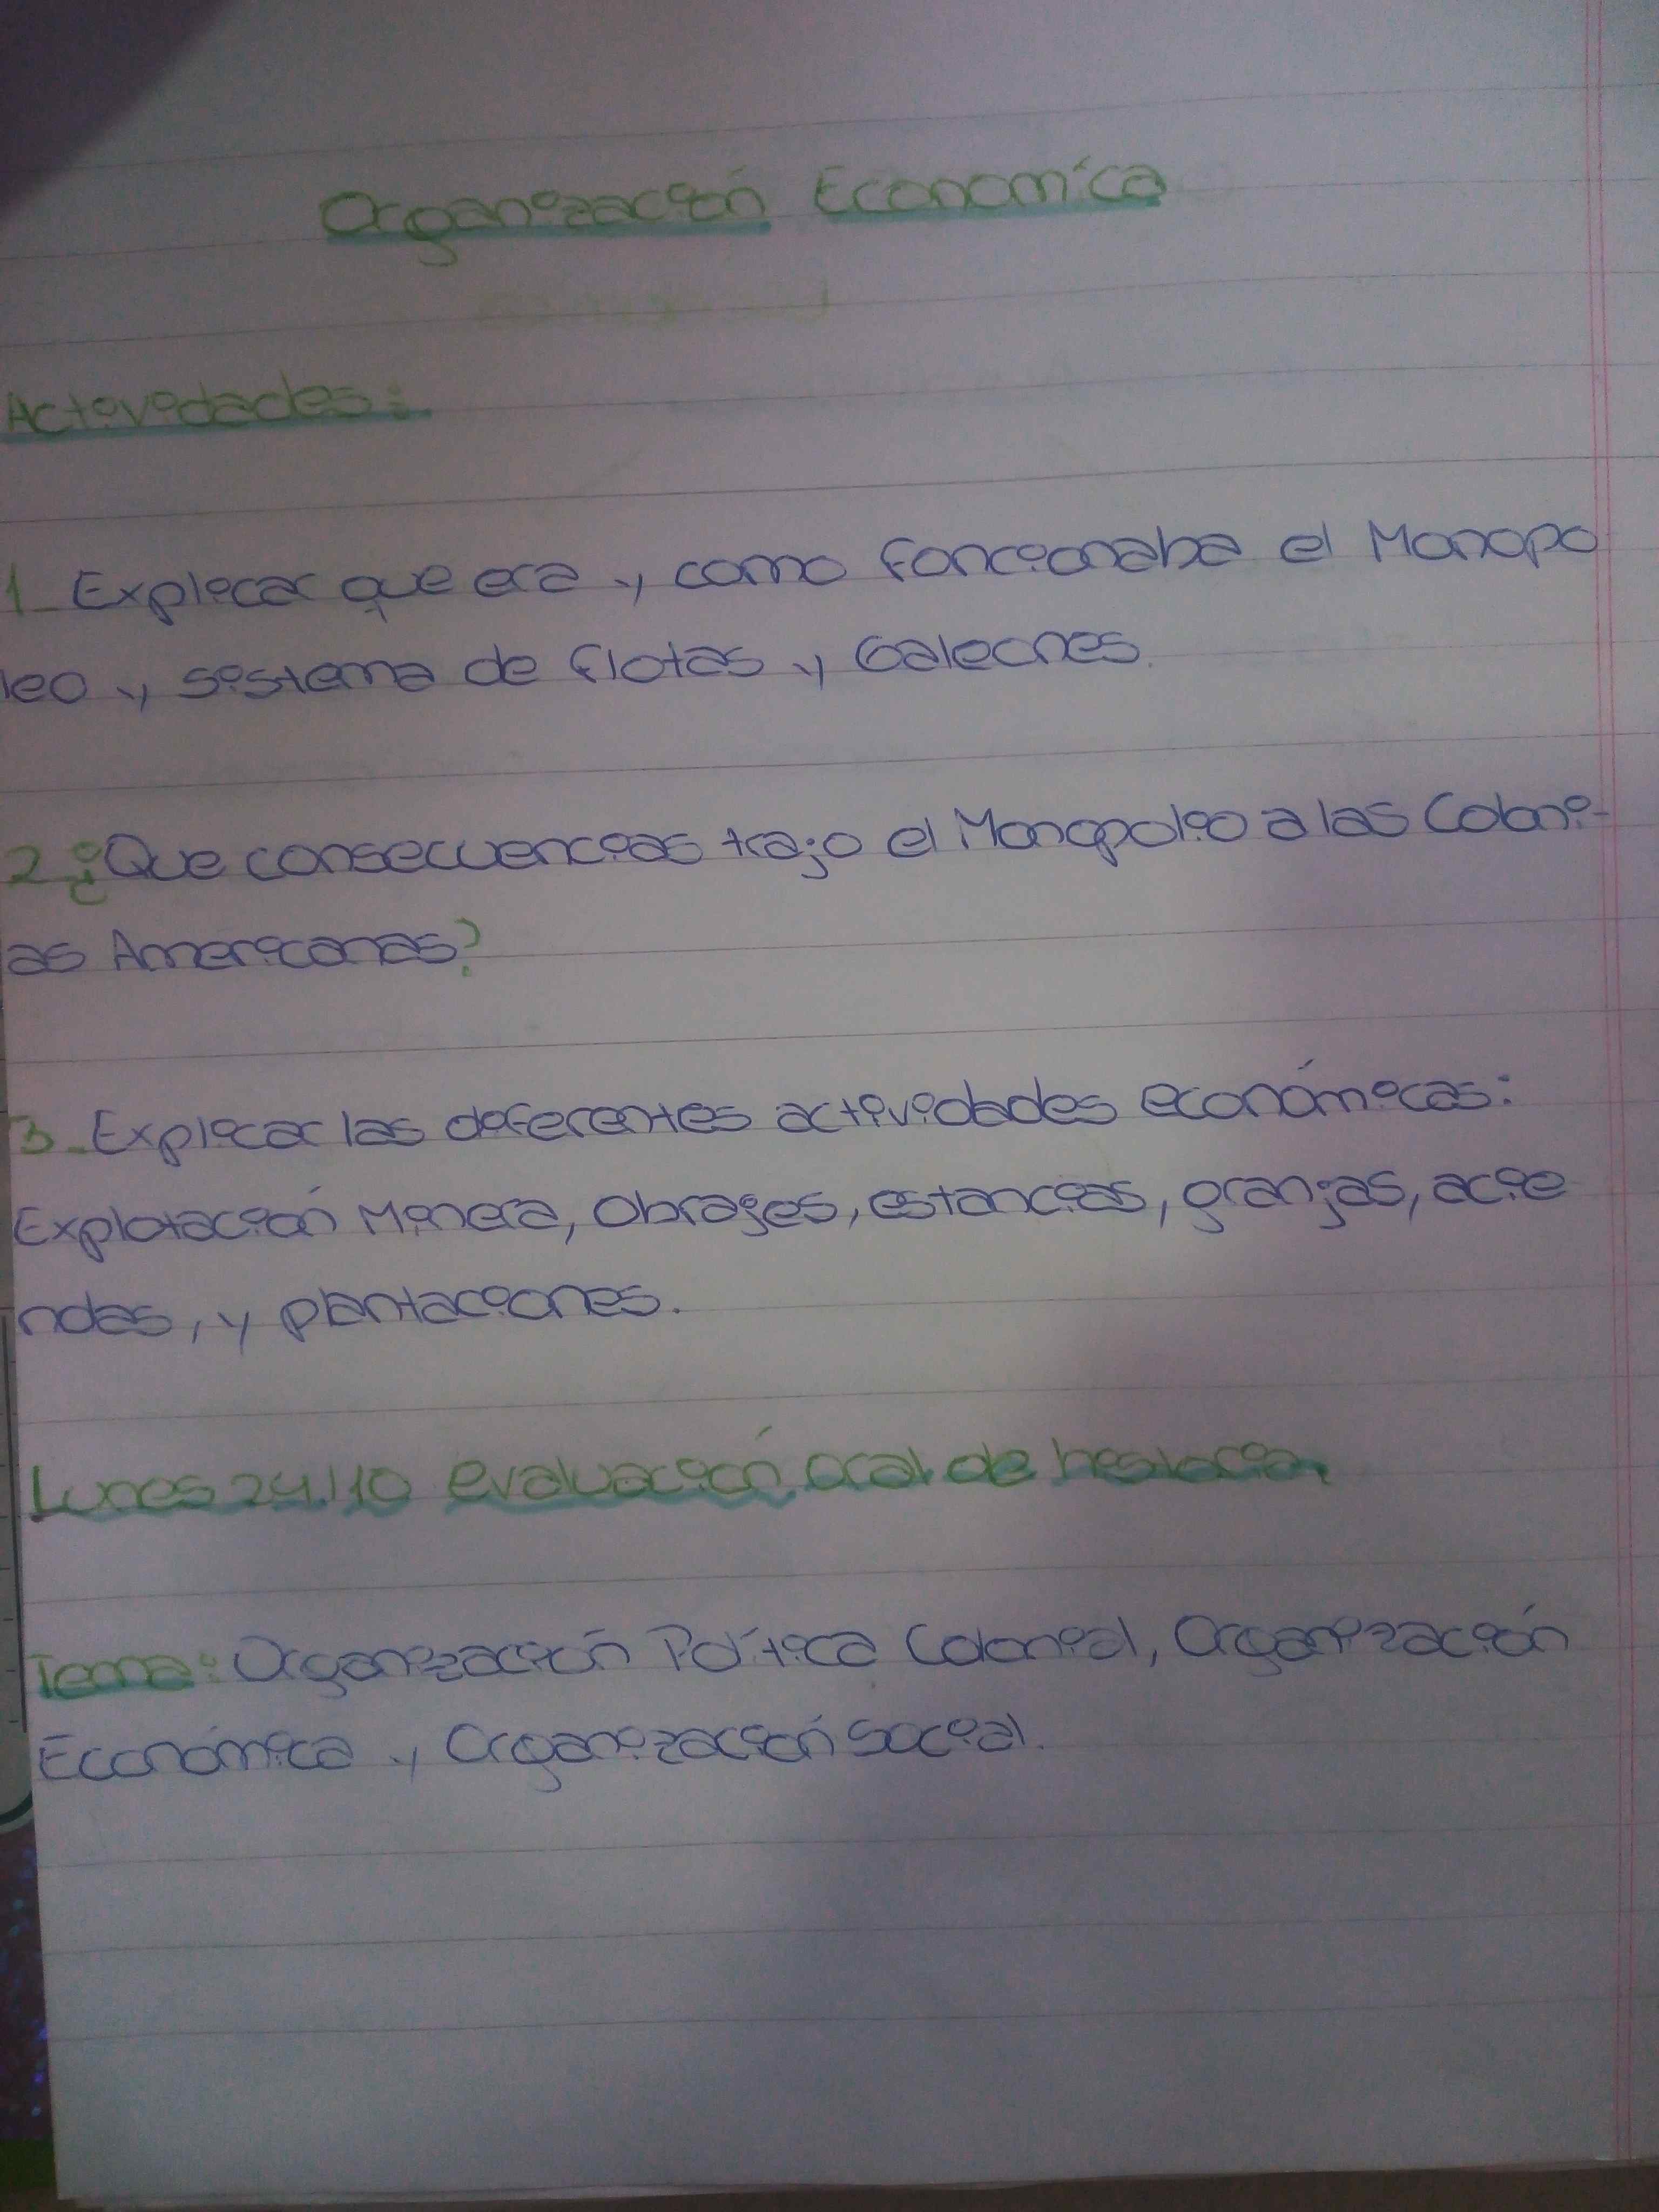 Organización Economíca
Actividades:
1_ Explicar que era y como Foncionaba el Monopo
lio y sistema de flotas y Galeones.
2_¿Que consecuencias trajo el Monopolio a las Coloni-
as Americanas?
3_ Explicar las diferentes actividades económicas:
Explotación Minera, Obrajes, estancias, granjas, acie
ndas, y plantaciones.
Lunes 24/10 evaluación oral de historia
Tema: Organización Política Colonial, Organización
Económica y Organización Social.